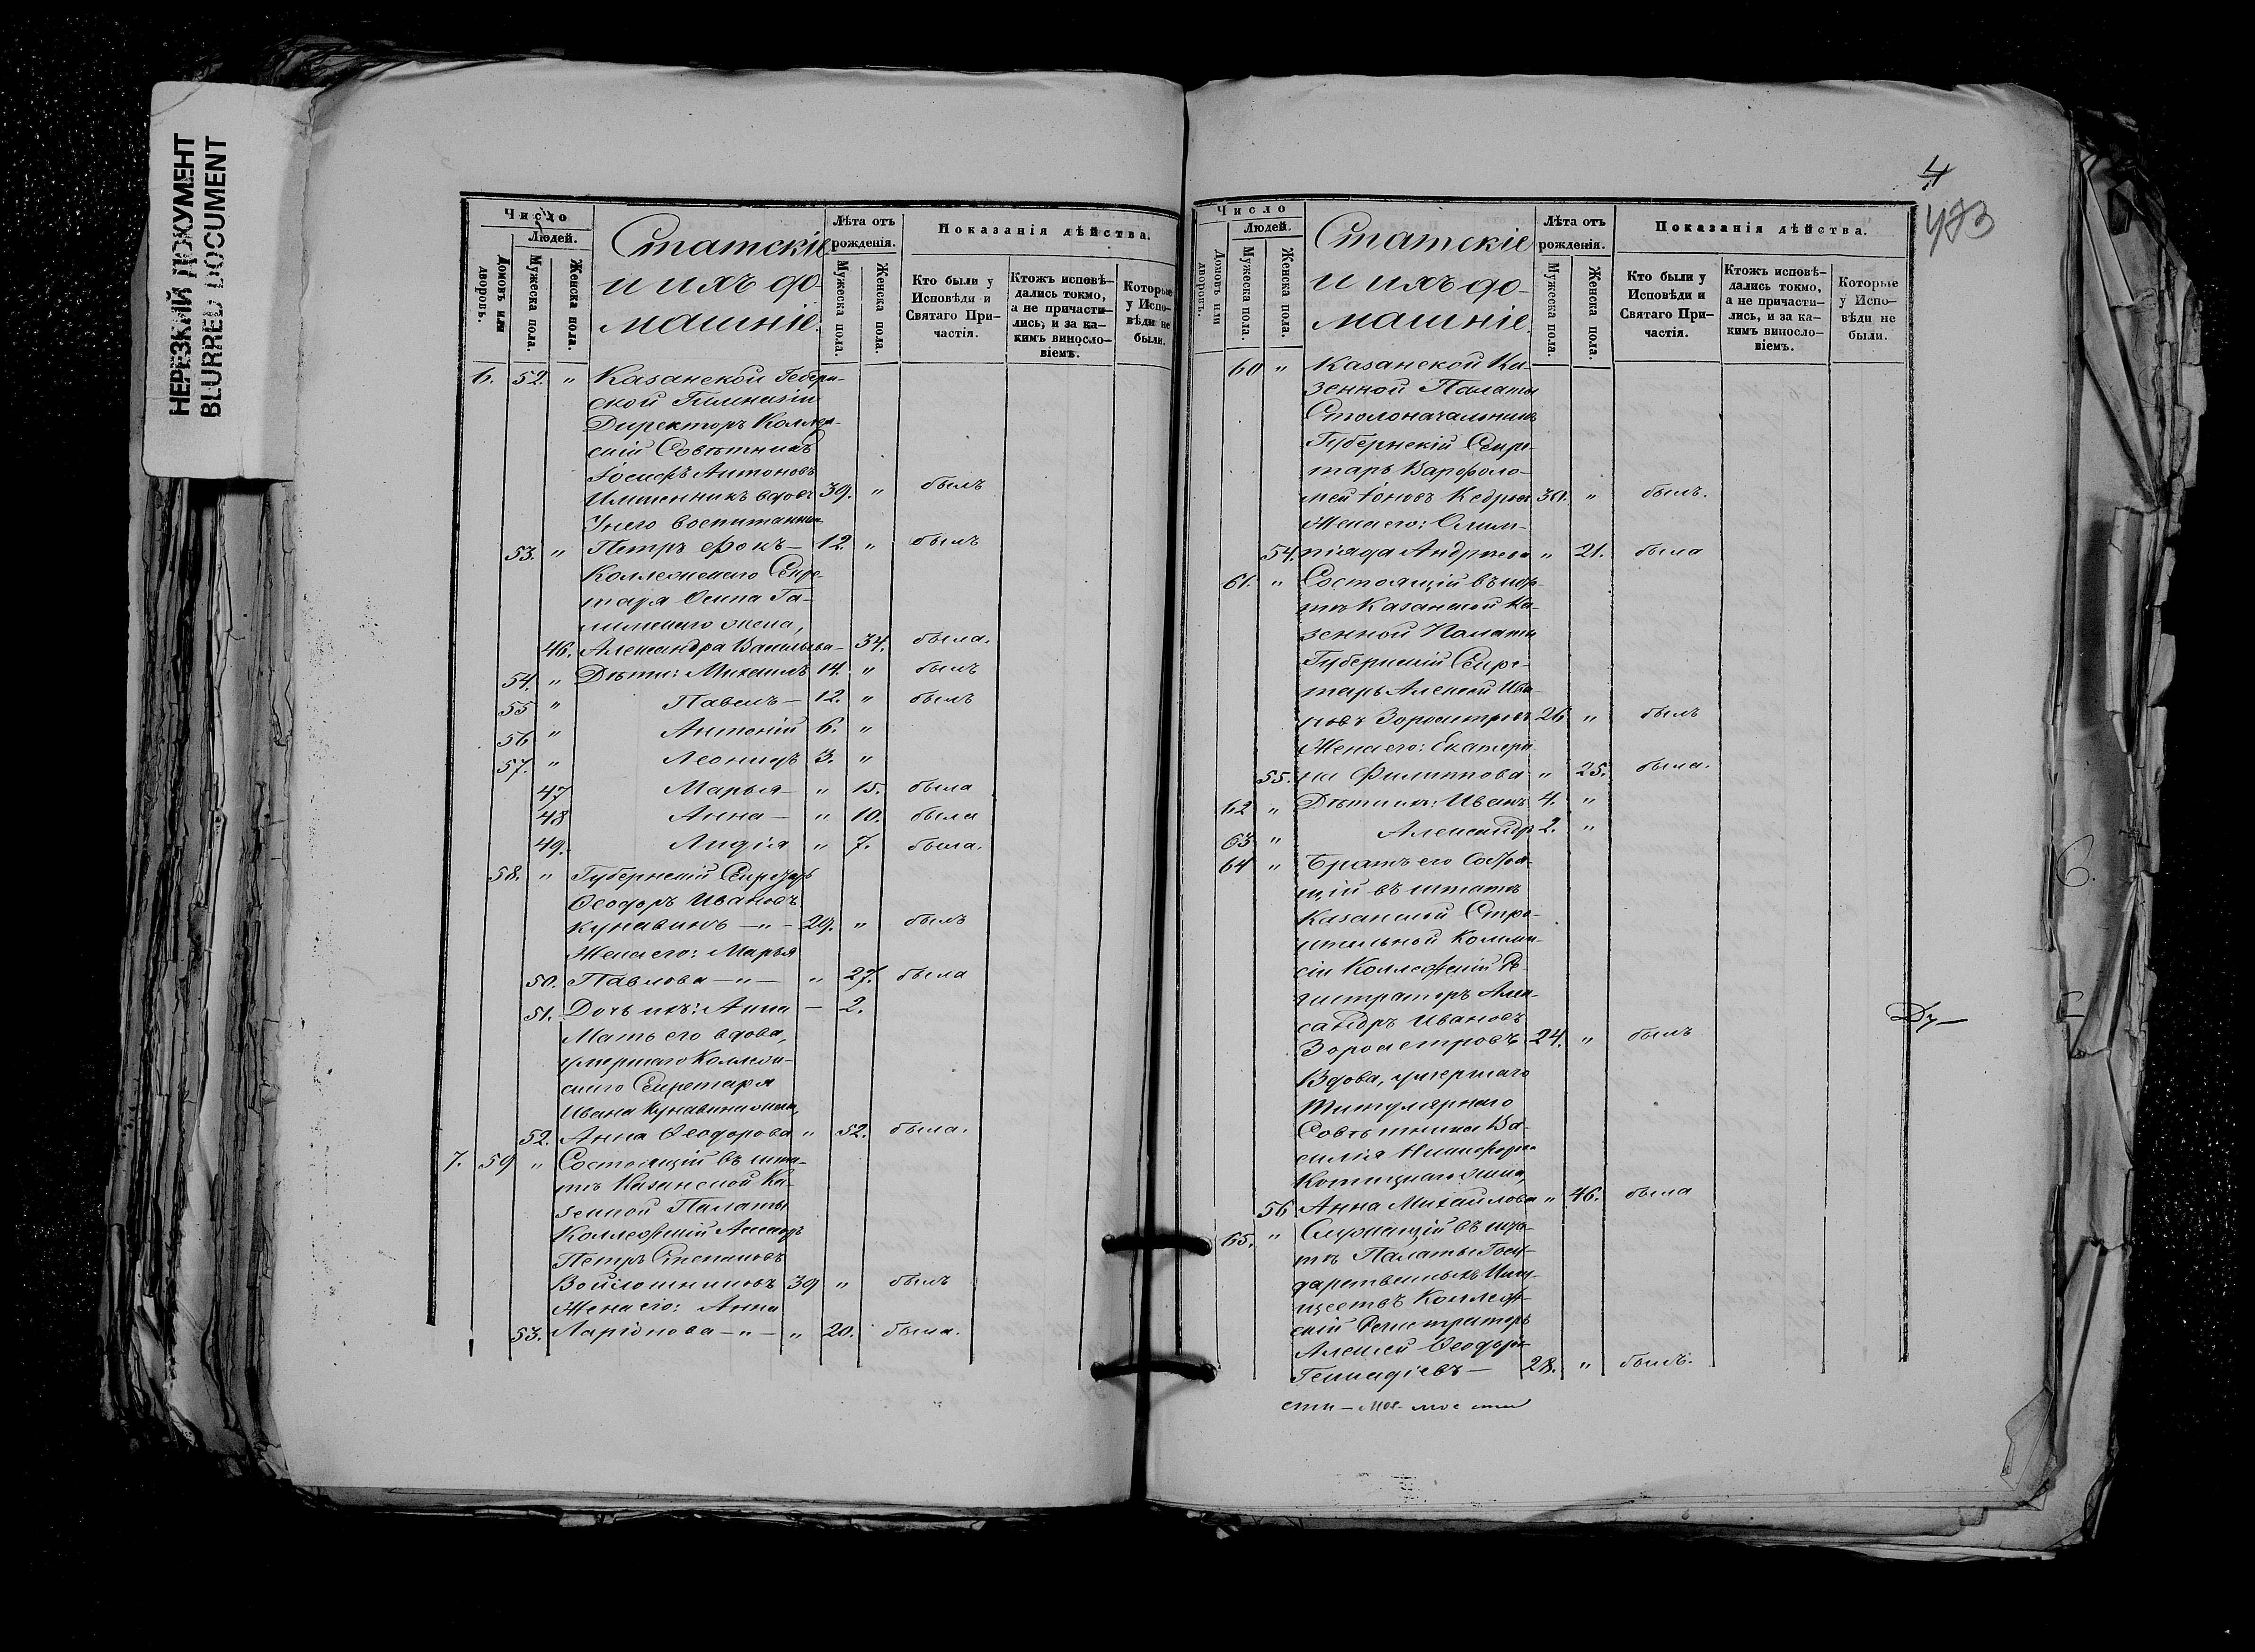 НЕРЕЗКИЙ ДОКУМЕНТ
BLURRED DOCUMENT
Число
Людей.
Домовъ или дворовъ.
Мужеска пола.
Женска пола.
Статскіе
и ихъ до-
машніе.
Лѣта отъ рожденія.
Мужеска пола.
Женска пола.
Показанія дѣйства.
Кто были у Исповѣди и Святаго При-частія.
Ктожъ исповѣ-дались токмо, а не причасти-лись, и за ка-кимъ винослo-віемъ.
Которые у Испо-вѣди не были.
6. 52. " Казанской
ской Гимназіи
Директоръ Коллеж-
скій Совѣтникъ
Іосифъ Антоновъ
вдовъ 39. " былъ
У него воспитанни-
53. " Петръ Фокъ — 12. " былъ
Коллежскаго Секре-
таря Осипа Га-
жена,
46. Александра Васильева — 34. была.
54. " Дѣти: Михаилъ 14. " былъ
55 " Павелъ — 12. " былъ
56 " Антоній 6. "
57. " Леонидъ 3. "
47 Марья — " 15. была
48 Анна — " 10. была
49. Лидія " 7. была.
58. " Губернскій Секретарь
Ѳеодоръ Ивановъ
Кунавинъ — " — 29. " былъ
Жена его: Марья
50. Павлова — " — " 27. была
51. Дочь ихъ: Анна — 2.
Мать его вдова,
умершаго Коллеж-
скаго Секретаря
Ивана Кунавина жена,
52. Анна Ѳеодорова " 52. была.
7. 59 " Состоящій въ шта-
тѣ Казанской Ка-
зенной Палаты
Коллежскій
Петръ Степановъ
Войлошниковъ 39 " былъ
Жена его: Анна
53. Ларіонова — " — " 20. была.
4
473
Число
Людей.
Домовъ или дворовъ.
Мужеска пола.
Женска пола.
Статскіе
и ихъ до-
машніе.
Лѣта отъ рожденія.
Мужеска пола.
Женска пола.
Показанія дѣйства.
Кто были у Исповѣди и Святаго При-частія.
Ктожъ исповѣ-дались токмо, а не причасти-лись, и за ка-кимъ винослo-віемъ.
Которые у Испо-вѣди не были.
60 " Казанской Ка-
зенной Палаты
Столоначальникъ
Губернскій Секре-
тарь Варфоло-
мей Іоновъ 30. " былъ.
Жена его: Олим-
54. піада Андреева " 21. была
61. " Состоящій въ шта-
тѣ Казанской Ка-
зенной Палаты
Губернскій Секре-
тарь Алексей Ива-
новъ Зороастровъ 26 " былъ
Жена его: Екатери-
55. на Филиппова " 25. была.
62 " Дѣти ихъ: Иванъ 4. "
63 " Александръ 2. "
64 " Братъ его Состоя-
щій въ штатѣ
Казанской Строи-
тельной Комми-
сіи Коллежскій Ре-
гистраторъ Алек-
сандръ Ивановъ
Зороастровъ 24. " былъ
Вдова, умершаго
Титулярнаго
Совѣтника Ва-
силія Никифорова
жена,
56 Анна Михайлова " 46. была
65. " Служащій въ шта-
тѣ Палаты Госу-
дарственныхъ Иму-
ществъ Коллеж-
скій Регистраторъ
Алексей Ѳеодоровъ
Геннадіевъ — 28. " былъ.
Ду—